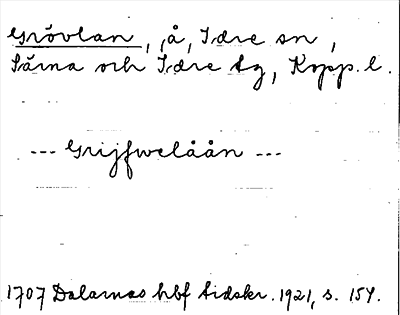 Grövlan, å, Idre sn,
Särna och Idre tg, Kopp. l.
--- Grijfwelåån ---
1707 Dalarnas hbf tidskr. 1921, s. 154.